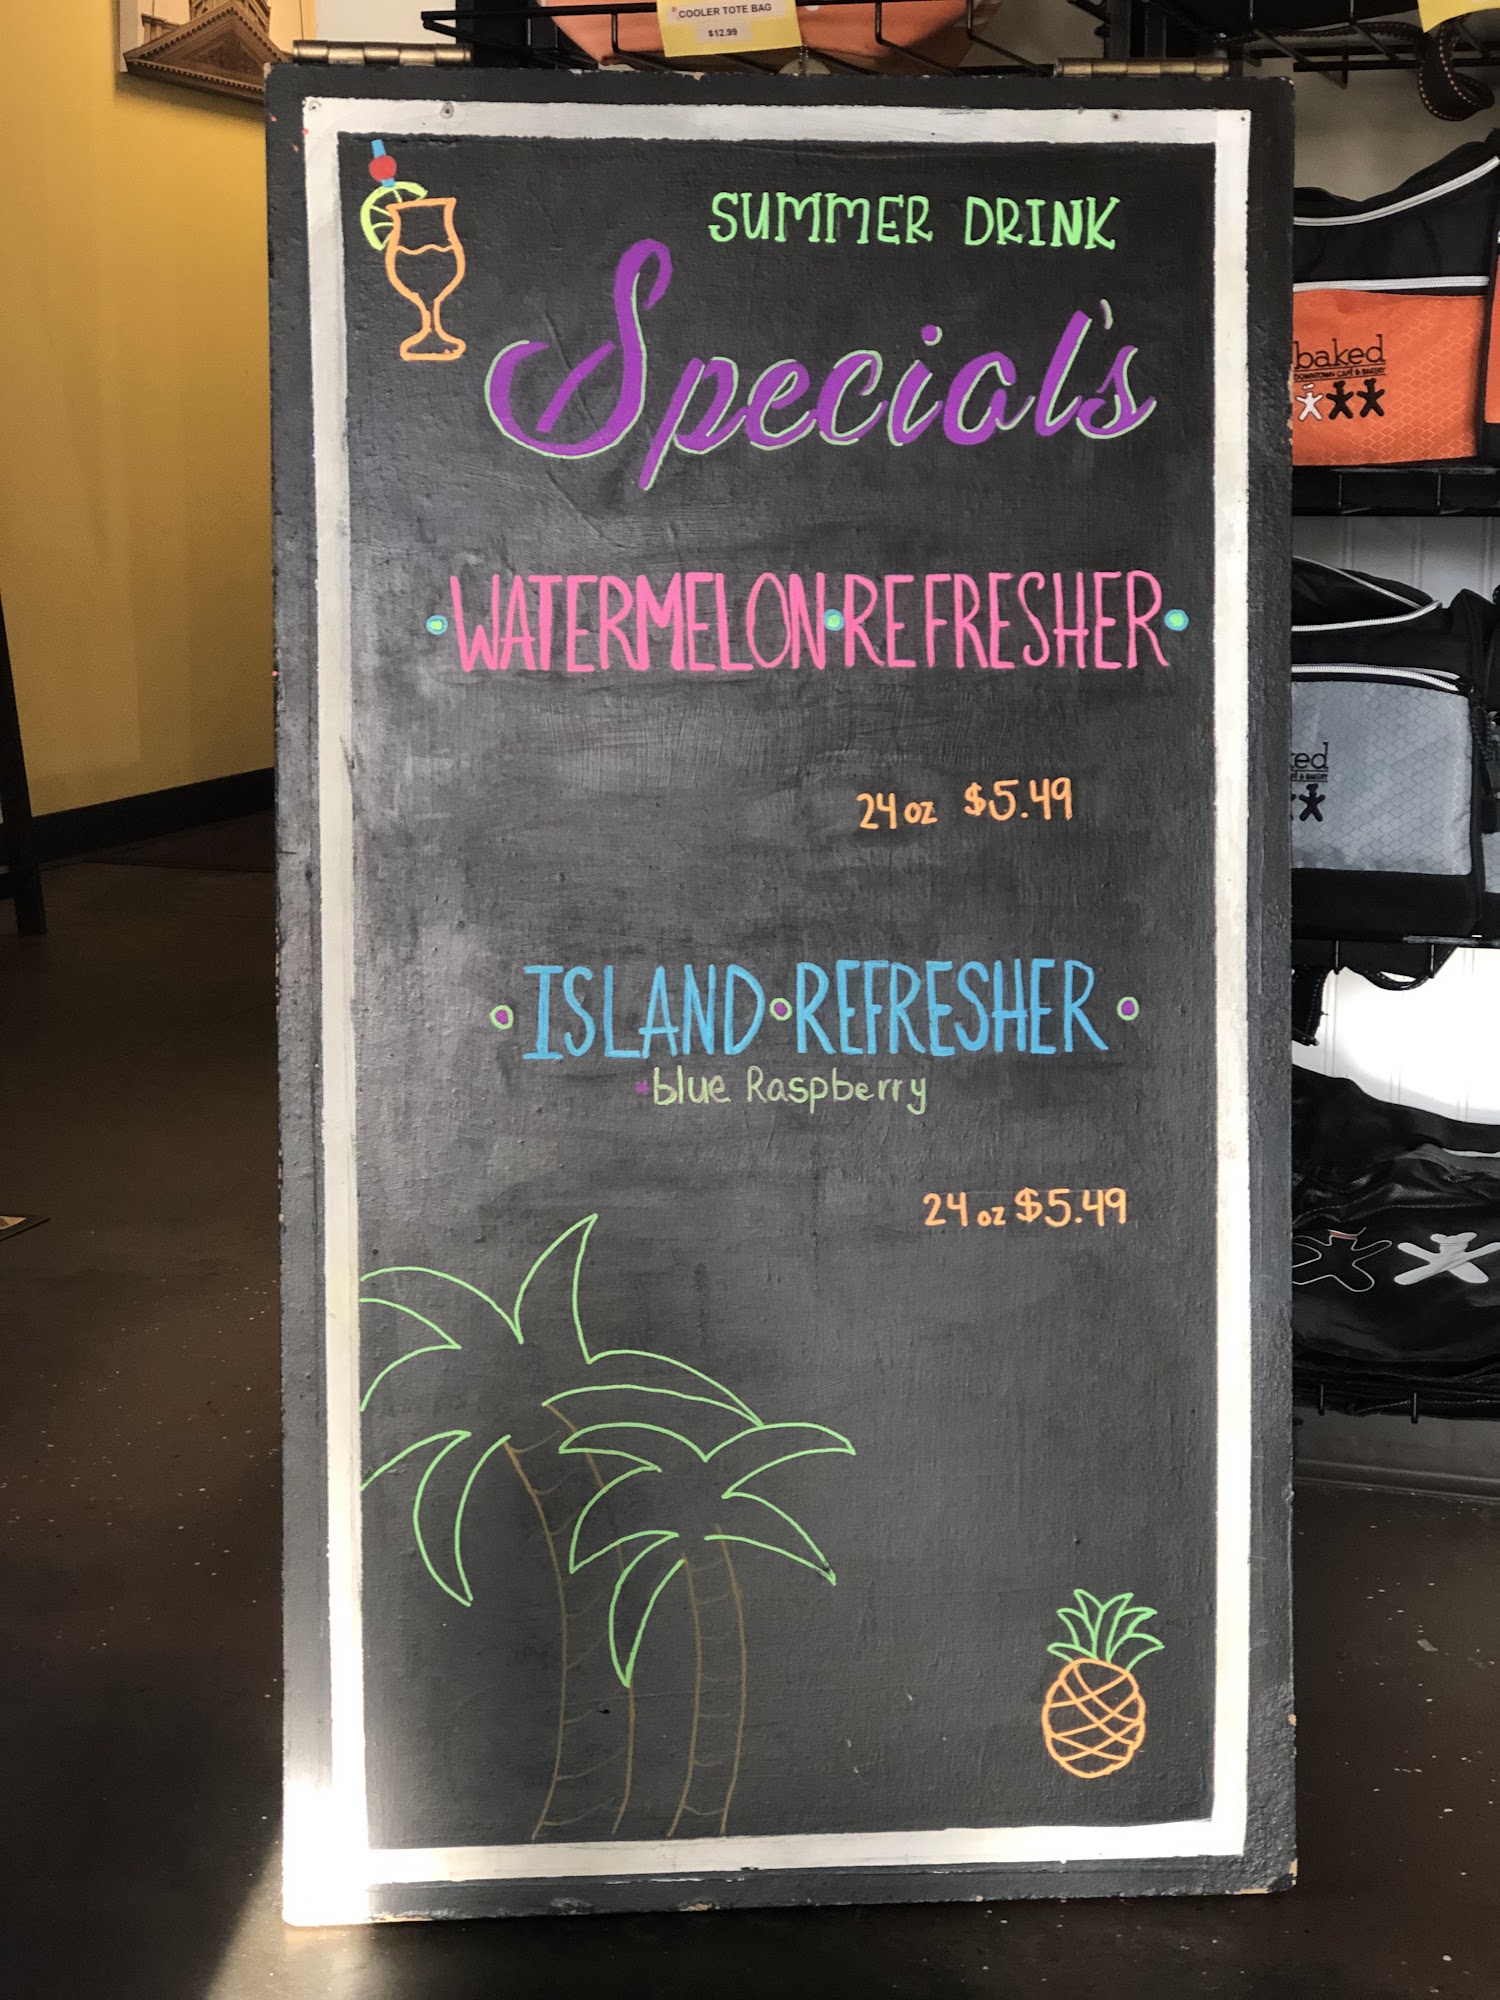 COOLER TOTE BAG
$12.99
SUMMER DRINK
Special's
WATERMELON•REFRESHER
24 oz $5.49
ISLAND•REFRESHER
•blue Raspberry
24 oz $5.49
baked
DOWNTOWN CAFÉ & BAKERY
ked
& BAKERY